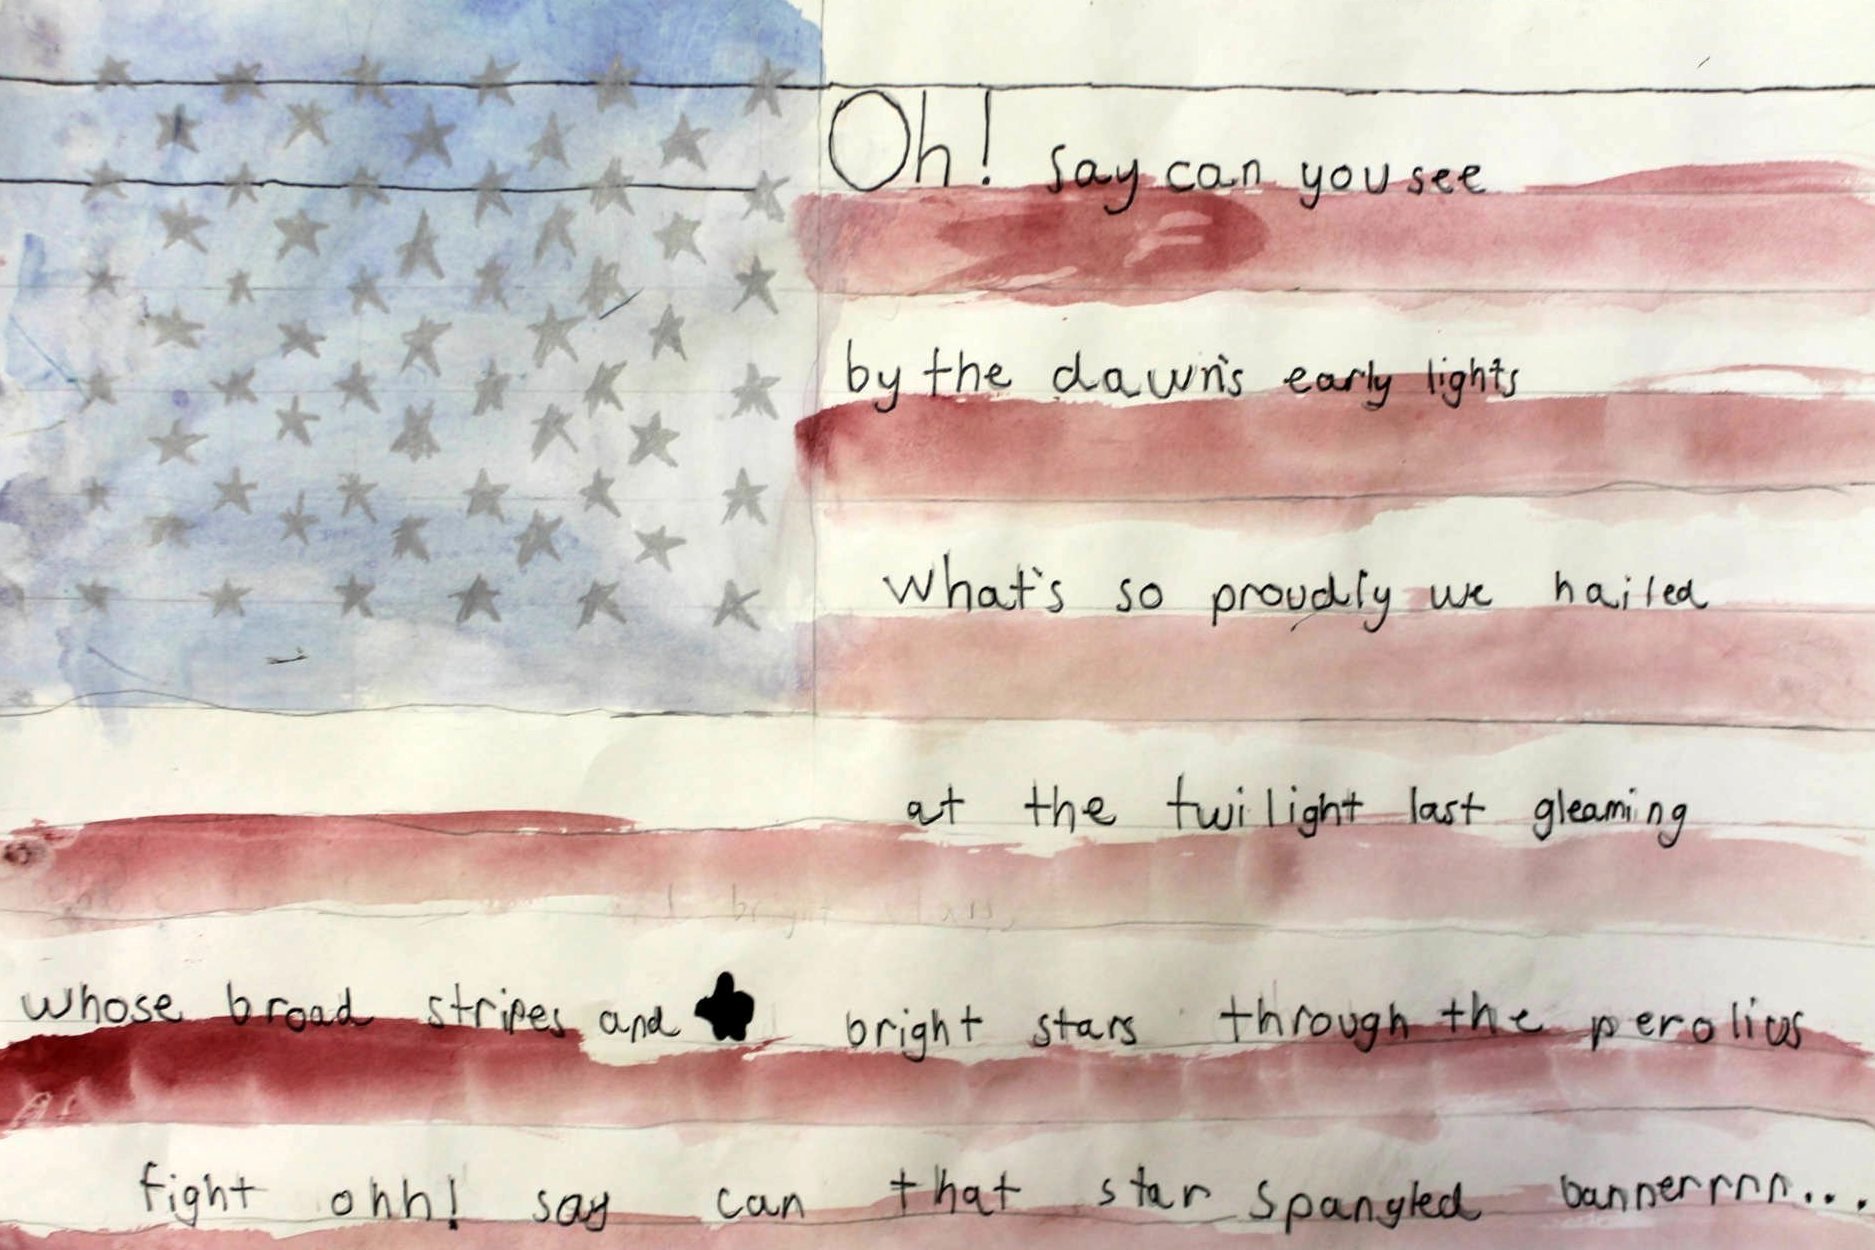 Oh! say can you see
by the dawn's early lights
what's so proudly we hailed
at the twilight last gleaming
whose broad stripes and bright stars through the perolios
fight ohh! say can that star spangled bannerrnn...